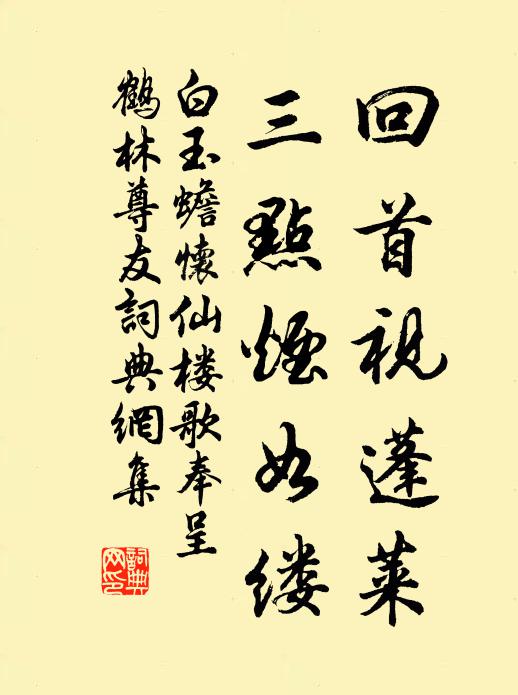 回首視蓬莱
三點煙如缕
白玉蟾懷仙楼歌奉呈
鶴林尊友詞典網集
詞典网印